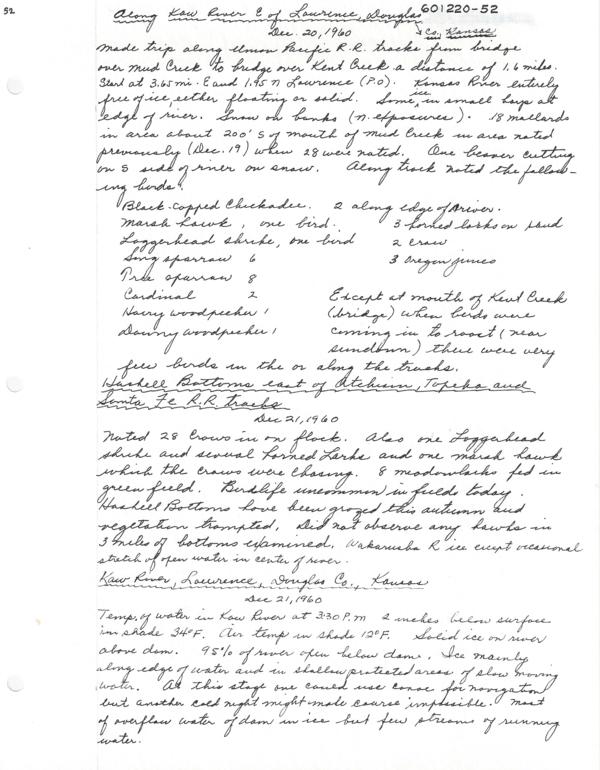 52
Along Kaw River E of Lawrence, Douglas 601220-52
Dec. 20, 1960 Co. Kansas
Made trip along Union Pacific R.R. tracks from bridge
over Mud Creek to bridge over Kent Creek a distance of 1.6 miles.
Start at 3.65 mi. E and 1.95 N Lawrence (P.O). Kansas River entirely
free of ice either floating or solid. Some ice in small bays at
edge of river. Snow on banks (n. exposures). 18 mallards
in area about 200' S of mouth of Mud Creek in area noted
previously (Dec. 19) when 28 were noted. One beaver cutting
on S side of river on snow. Along track noted the follow-
ing birds.
Black-capped Chickadee. 2 along edge of river.
Marsh hawk, one bird. 3 horned larks on
Loggerhead shrike, one bird 2 crow
Song sparrow 6 3 Oregon junco
Tree sparrow 8
Cardinal 2 Except at mouth of Kent Creek
Hairy woodpecker 1 (bridge) when birds were
Downy woodpecker 1 coming in to roost (near
sundown) there were very
few birds in the or along the tracks.
Haskell Bottoms east of Atchison, Topeka and
Santa Fe R.R. tracks
Dec 21, 1960
Noted 28 Crows in on flock. Also one Loggerhead
shrike and several Horned Larks and one marsh hawk
which the crows were chasing. 8 meadowlarks fed in
green field. Birdlife uncommon in fields today.
Haskell Bottoms have been grazed this autumn and
vegetation trampled. Did not observe any hawks in
3 miles of bottoms examined. Wakarusha R ice except occasional
stretch of open water in center of river.
Kaw River, Lawrence, Douglas Co., Kansas
Dec 21, 1960
Temp. of water in Kaw River at 3:30 P.M 2 inches below surface
in shade 34°F. Air temp in shade 12°F. Solid ice on river
above dam. 95% of river open below dam. Ice mainly
along edge of water and in shallow protected areas of slow moving
water. At this stage one could use canoe for navigation
but another cold night might make course impossible. Most
of overflow water of dam in ice but few streams of running
water.